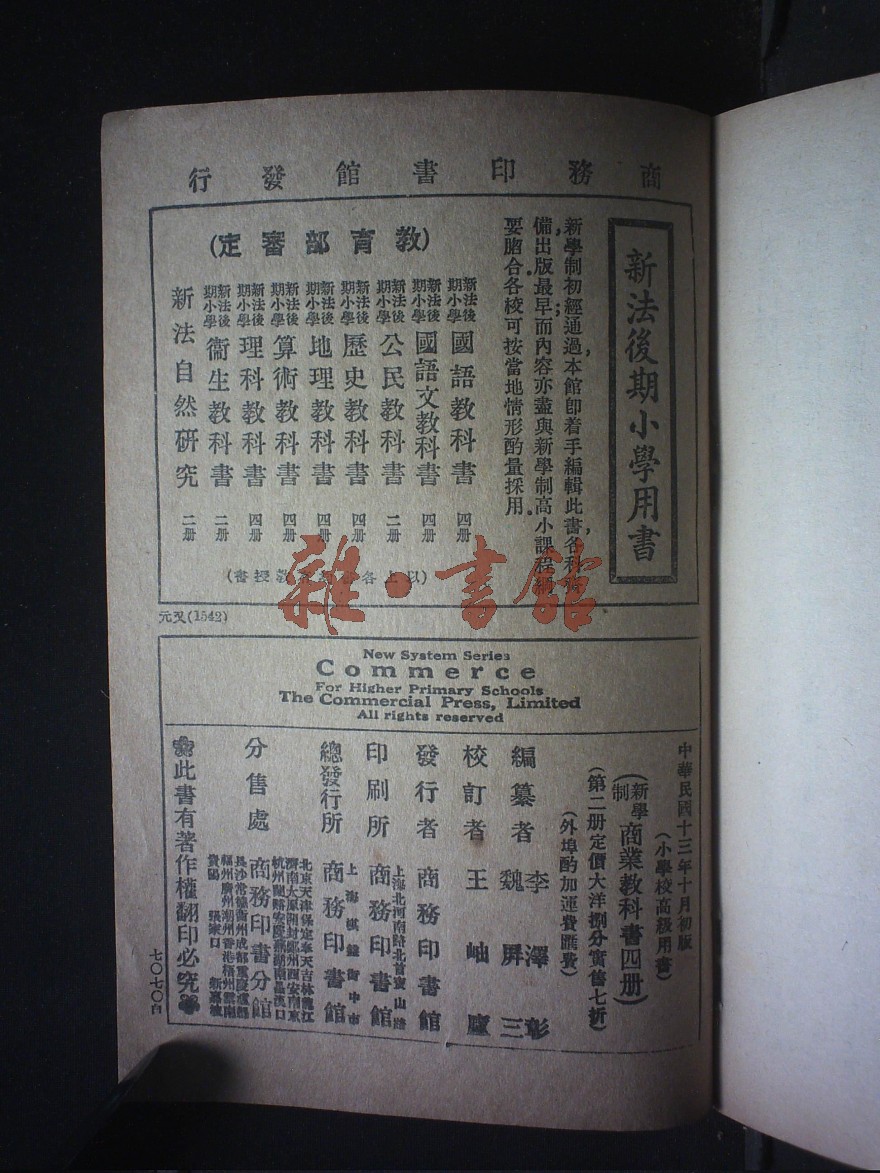 商務印書館發行
新法後期小學用書
新學制初經通過，本館卽着手編輯此書，各科齊
備，出版最早；而內容亦盡與新學制高小課程綱
要脗合，各校可按當地情形酌量採用。
(教育部審定)
新法後期小學 國語教科書 四册
新法後期小學 國語文教科書 四册
新法後期小學 公民教科書 二册
新法後期小學 歷史教科書 四册
新法後期小學 地理教科書 四册
新法後期小學 算術教科書 四册
新法後期小學 理科教科書 四册
新法後期小學 衞生教科書 二册
新法自然研究 二册
(以上各書 教授書)
元(1542)
雜·書館
New System Series
Commerce
For Higher Primary Schools
The Commercial Press, Limited
All rights reserved
中華民國十三年十月初版
(小學校高級用書)
(新學制商業教科書四册)
(第二册定價大洋捌分實售七折)
(外埠酌加運費匯費)
編纂者 李澤彰
魏屏三
校訂者 王岫廬
發行者 商務印書館
上海北河南路北首寶山路
印刷所 商務印書館
上海棋盤街中市
總發行所 商務印書館
北京天津保定奉天吉林龍江
濟南太原開封鄭州西安南京
杭州蘭谿安慶蕪湖南昌漢口
分售處 商務印書分館
長沙常德衡州成都重慶瀘縣
福州廣州潮州香港梧州雲南
貴陽 張家口 新嘉坡
此書有著作權翻印必究
七〇七〇白